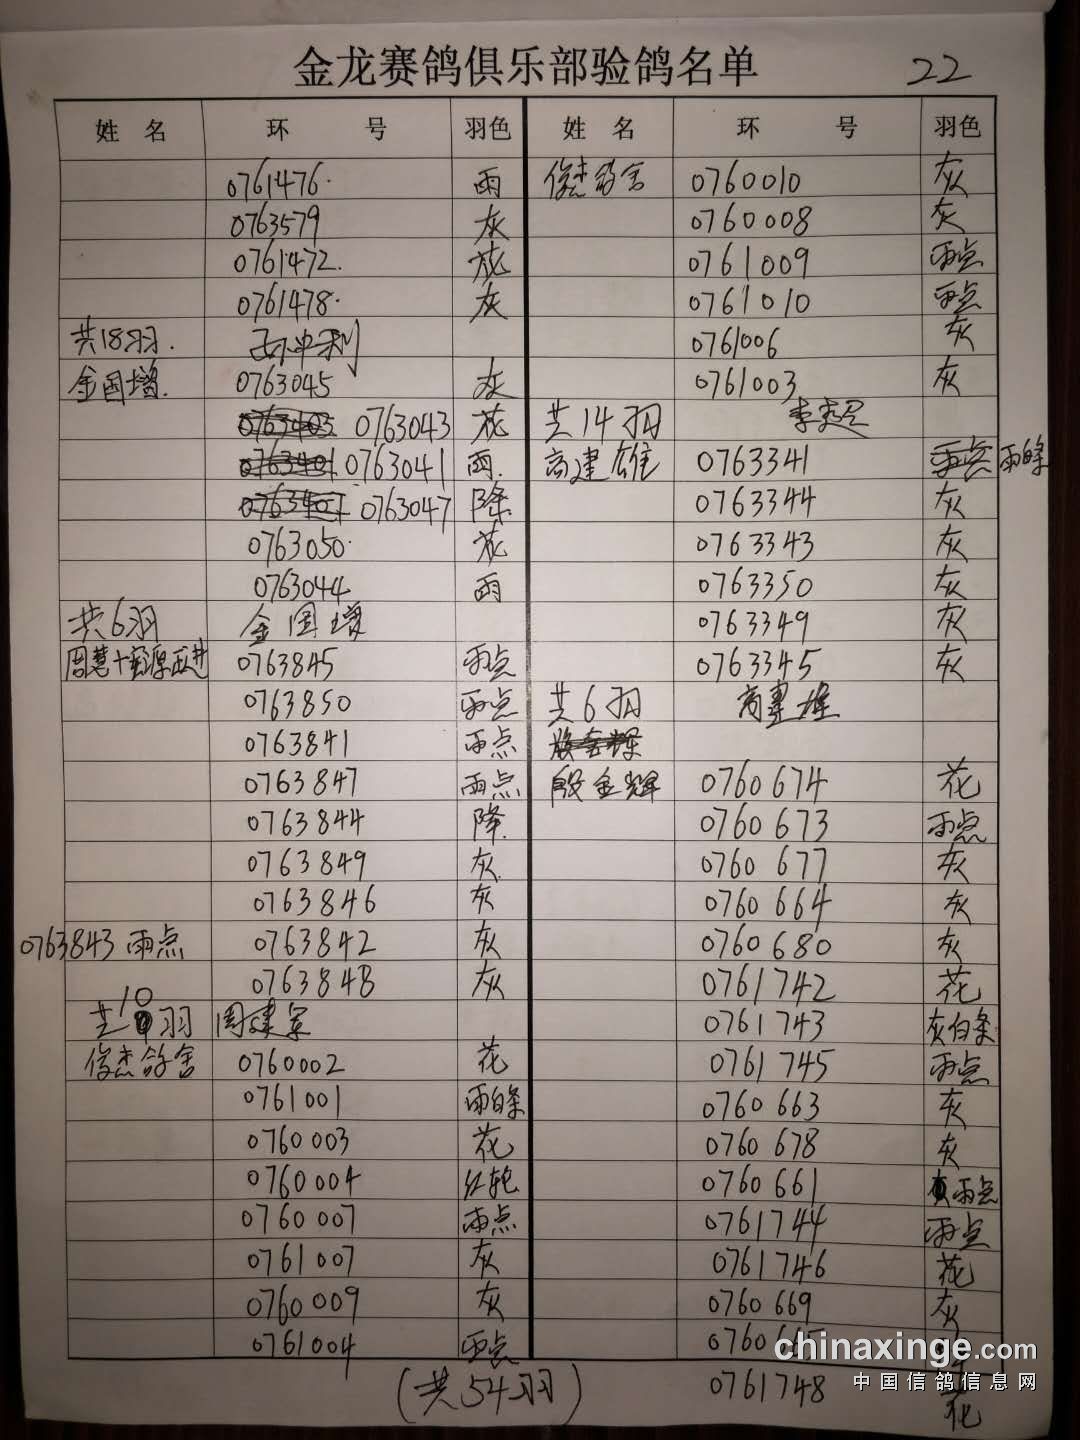 金龙赛鸽俱乐部验鸽名单
22
姓 名 环 号 羽色
0761476 雨
0763579 灰
0761472 花
0761478 灰
共18羽.
金国增. 0763045 灰
0763043 花
0763041 雨
0763047 降
0763050 花
0763044 雨
共6羽 金国增
0763845 雨点
0763850 雨点
0763841 雨点
0763847 雨点
0763844 降
0763849 灰
0763846 灰
0763843 雨点 0763842 灰
0763848 灰
共10羽 周建军
俊杰鸽舍 0760002 花
0761001 雨白条
0760003 花
0760004 红轮
0760007 雨点
0761007 灰
0760009 灰
0761004 雨点
(共54羽)
姓 名 环 号 羽色
俊杰鸽舍 0760010 灰
0760008 灰
0761009 雨点
0761010 雨点
0761006 灰
0761003 灰
共14羽
高建雄 0763341 雨点 雨条
0763344 灰
0763343 灰
0763350 灰
0763349 灰
0763345 灰
共6羽 高建雄
殷金辉 0760674 花
0760673 雨点
0760677 灰
0760664 灰
0760680 灰
0761742 花
0761743 灰白条
0761745 雨点
0760663 灰
0760678 灰
0760661 雨点
0761744 雨点
0761746 花
0760669 灰
0760665
0761748 花
chinaxinge.com
中国信鸽信息网